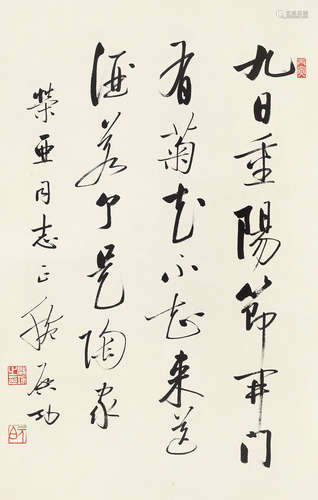 九日重陽節開門
有菊花不知来送
酒若个是陶家
榮亞同志正腕 启功